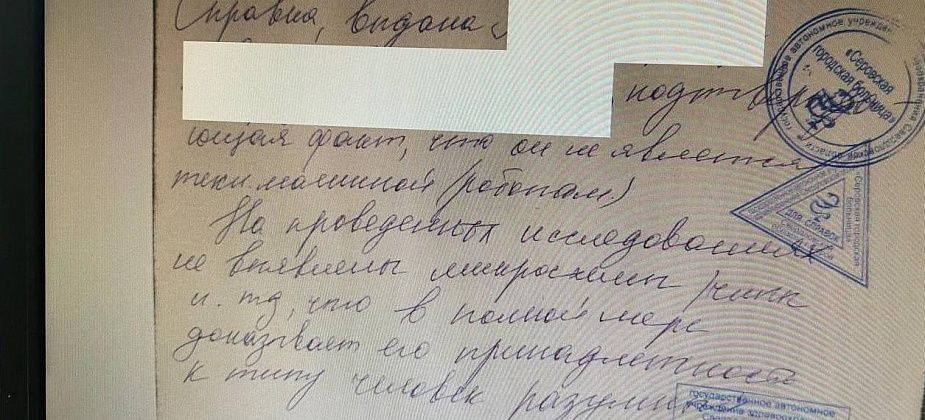 Справка, выдана
, подтвержда-
ющая факт, что он не является
техн. машиной (роботом.)
На проведенных исследованиях
не выявлены микросхемы, чипы
и. тд, что в полной мере
доказывает его принадлежность
к типу человек разумный
«Серовская
городская больница»
государственное автономное учреждение
Свердловской области
«Серовская городская
больница»
для справок
государственное автономное
учреждение здравоохр